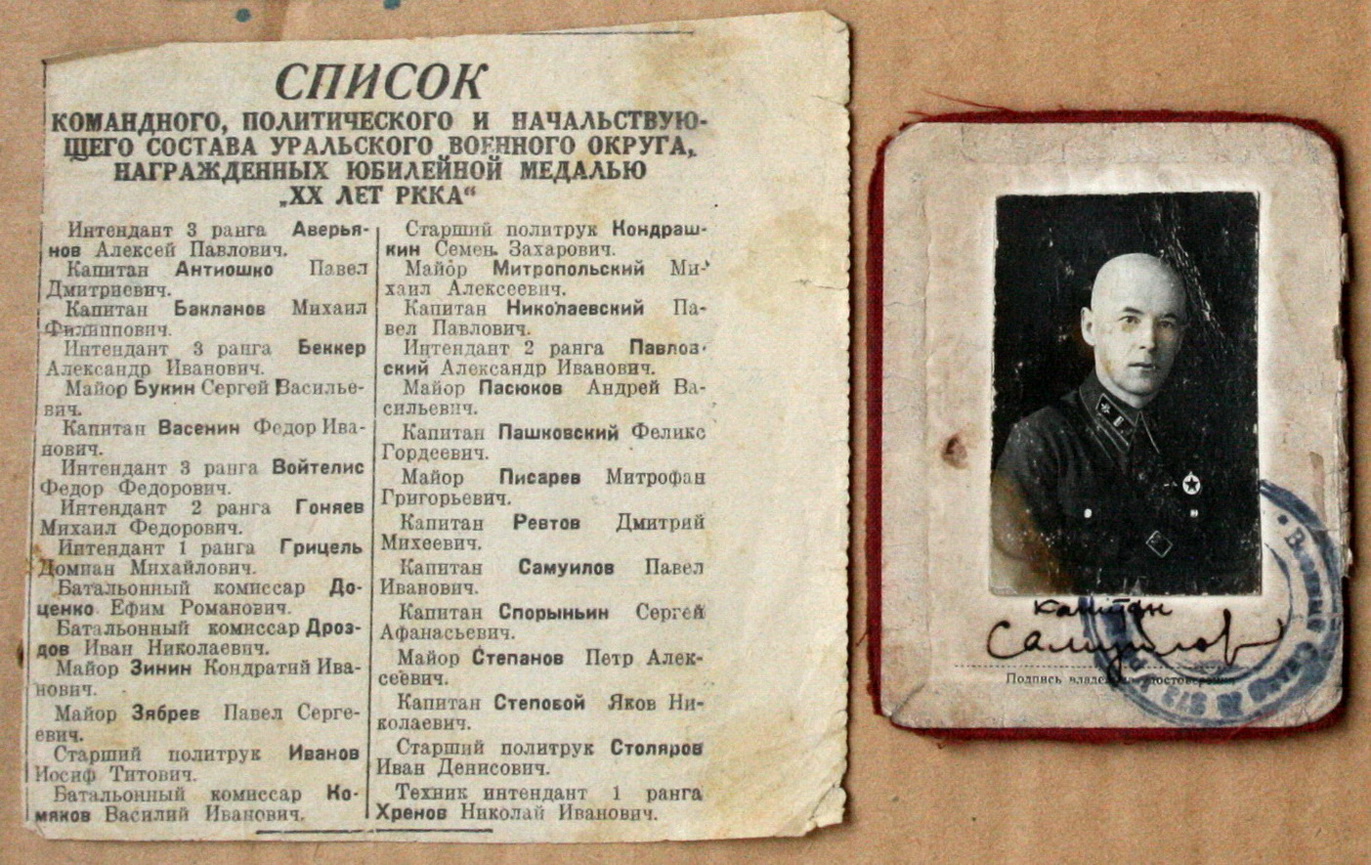 СПИСОК
КОМАНДНОГО, ПОЛИТИЧЕСКОГО И НАЧАЛЬСТВУЮ-
ЩЕГО СОСТАВА УРАЛЬСКОГО ВОЕННОГО ОКРУГА,
НАГРАЖДЕННЫХ ЮБИЛЕЙНОЙ МЕДАЛЬЮ
„XX ЛЕТ РККА“
Интендант 3 ранга Аверья-
нов Алексей Павлович.
Капитан Антиошко Павел
Дмитриевич.
Капитан Бакланов Михаил
Филиппович.
Интендант 3 ранга Беккер
Александр Иванович.
Майор Букин Сергей Василье-
вич.
Капитан Васенин Федор Ива-
нович.
Интендант 3 ранга Войтелис
Федор Федорович.
Интендант 2 ранга Гоняев
Михаил Федорович.
Интендант 1 ранга Грицель
Домиан Михайлович.
Батальонный комиссар До-
ценко Ефим Романович.
Батальонный комиссар Дроз-
дов Иван Николаевич.
Майор Зинин Кондратий Ива-
нович.
Майор Зябрев Павел Серге-
евич.
Старший политрук Иванов
Иосиф Титович.
Батальонный комиссар Ко-
мяков Василий Иванович.
Старший политрук Кондраш-
кин Семен Захарович.
Майор Митропольский Ми-
хаил Алексеевич.
Капитан Николаевский Па-
вел Павлович.
Интендант 2 ранга Павлов-
ский Александр Иванович.
Майор Пасюков Андрей Ва-
сильевич.
Капитан Пашковский Феликс
Гордеевич.
Майор Писарев Митрофан
Григорьевич.
Капитан Ревтов Дмитрий
Михеевич.
Капитан Самуилов Павел
Иванович.
Капитан Спорыньин Сергей
Афанасьевич.
Майор Степанов Петр Алек-
сеевич.
Капитан Степовой Яков Ни-
колаевич.
Старший политрук Столяров
Иван Денисович.
Техник интендант 1 ранга
Хренов Николай Иванович.
капитан
Самуилов
Подпись владельца удостоверения